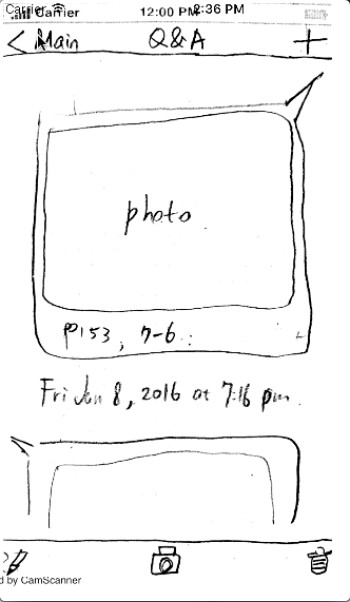 Carrier 12:00 PM 8:36 PM
< Main Q&A +
photo
P153, 7-6.
Fri Jan 8, 2016 at 7:16 pm.
d by CamScanner